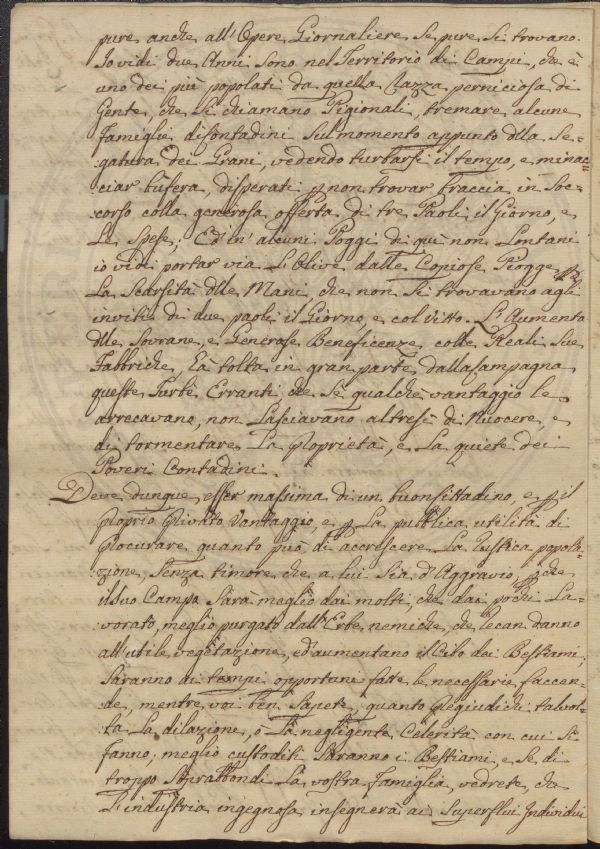 pure anche all'Opere Giornaliere, se pure si trovano.
Io vidi due Anni sono nel Territorio di Campi, che è
uno dei più popolati da quella Razza perniciosa di
Gente, che si chiamano Pigionali, tremare alcune
famiglie di Contadini sul momento appunto dlla Se=
:gatura dei Grani, vedendo turbarsi il tempo, e minac=
:ciar bufera, disperati p non trovar braccia in Soc=
:corso colla generosa offerta di tre Paoli il Giorno, e
le Spese; Ed in' alcuni Poggi di quì non Lontani
io vidi portar via L'Olive dalle Copiose Piogge p
La Scarsità dlle Mani che non si trovavano agli
inviti di due paoli il Giorno, e col vitto. L'Aumento
dlle Sovrane, e Generose Beneficenze colle Reali Sue
Fabbriche, hà tolta in gran parte dalla Campagna
queste Turbe Erranti che se qualche vantaggio le
arrecavano, non Lasciavano altresì di Nuocere, e
di tormentare La proprietà, e La quiete dei
Poveri Contadini.
Deve dunque esser massima di un buon Cittadino, e p il
proprio privato Vantaggio, e p La pubblica utilità di
procurare quanto può di accrescere La rustica popola=
:zione, Senza timore che a lui Sia d'Aggravio, pche
il suo Campo Sarà meglio dai molti, che dai pochi La=
:vorato, meglio purgato dall'Erbe nemiche, che recan danno
all'utile vegetazione, ed aumentano il Cibo dei Bestiami;
Saranno di tempi opportuni fatte le necessarie faccen=
:de, mentre voi ben Sapete, quanto pregiudichi talvol=
:ta La dilazione, ò La negligente Celerità con cui si
fanno; meglio custoditi Saranno i Bestiami, e se di
troppo Soprabbondi La vostra famiglia, vedrete, che
L'industria ingegnosa insegnerà ai Superflui Individui